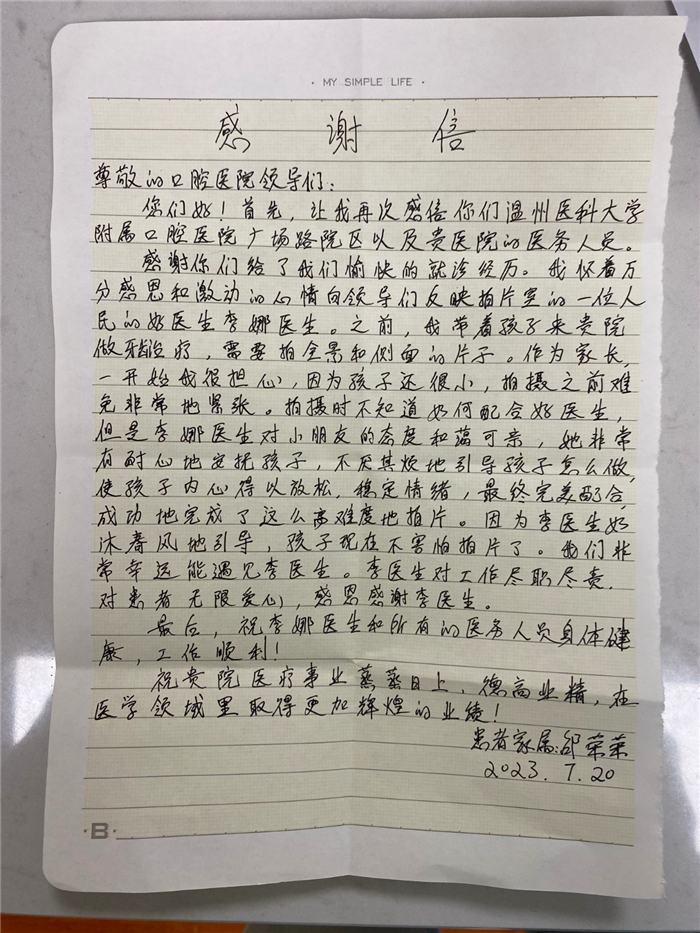 · MY SIMPLE LIFE ·
感谢信
尊敬的口腔医院领导们:
您们好!首先,让我再次感恪你们温州医科大学
附属口腔医院广场路院区以及贵医院的医务人员。
感谢你们给了我们愉快的就诊经历。我怀着万
分感恩和激动的心情向领导们反映拍片室的一位人
民的好医生李娜医生。之前,我带着孩子来贵院
做牙齿治疗,需要拍全景和侧面的片子。作为家长,
一开始我很担心,因为孩子还很小,拍摄之前难
免非常地紧张。拍摄时不知道如何配合好医生,
但是李娜医生对小朋友的态度和蔼可亲,她非常
有耐心地安抚孩子,不厌其烦地引导孩子怎么做,
使孩子内心得以放松,稳定情绪,最终完美配合,
成功地完成了这么高难度地拍片。因为李医生如
沐春风地引导,孩子现在不害怕拍片了。我们非
常幸运能遇见李医生。李医生对工作尽职尽责,
对患者无限爱心,感恩感谢李医生。
最后,祝李娜医生和所有的医务人员身体健
康,工作顺利!
祝贵院医疗事业蒸蒸日上,德高业精,在
医学领域里取得更加辉煌的业绩!
患者家属:邵荣荣
2023.7.20
·B·